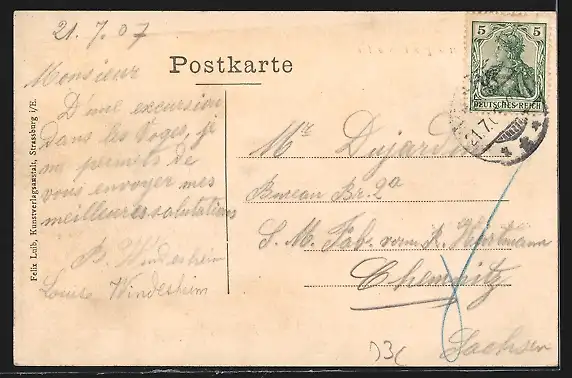 21. 7. 07
Postkarte
5
DEUTSCHES REICH
Monsieur
D'une excursion
dans les Voges, je
me permets de
vous envoyer mes
meilleures salutations
B. Windesheim
Louise Windesheim
Mr Dujardin
Bureau Br. 2a
S. M. Fab. vorm. R. Hartmann
Chemnitz
Sachsen
Felix Luib, Kunstverlagsanstalt, Strassburg i/E.